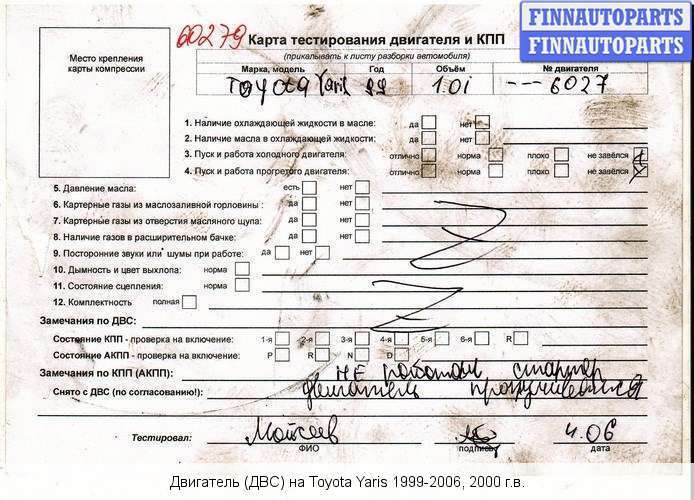 60279 Карта тестирования двигателя и КПП
FINNAUTOPARTS
FINNAUTOPARTS
(прикалывать к листу разборки автомобиля)
Место крепления
карты компрессии
Марка, модель Год Объём № двигателя
Toyota Yaris 99 1.0i ---6027
1. Наличие охлаждающей жидкости в масле: да нет
2. Наличие масла в охлаждающей жидкости: да нет
3. Пуск и работа холодного двигателя: отлично норма плохо не завёлся
4. Пуск и работа прогретого двигателя: отлично норма плохо не завёлся
5. Давление масла: есть нет
6. Картерные газы из маслозаливной горловины: да нет
7. Картерные газы из отверстия масляного щупа: да нет
8. Наличие газов в расширительном бачке: да нет
9. Посторонние звуки или шумы при работе: да нет
10. Дымность и цвет выхлопа: норма
11. Состояние сцепления: норма
12. Комплектность полная
Замечания по ДВС:
Состояние КПП - проверка на включение: 1-я 2-я 3-я 4-я 5-я 6-я R
Состояние АКПП - проверка на включение: P R N D
Замечания по КПП (АКПП): не работал стартер
Снято с ДВС (по согласованию!): двигатель прокручивался
Тестировал: Мойсеев 4.06
ФИО подпись дата
Двигатель (ДВС) на Toyota Yaris 1999-2006, 2000 г.в.